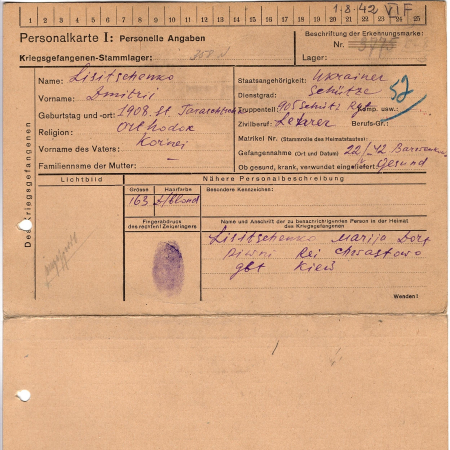 1 2 3 4 5 6 7 8 9 10 11 12 13 14 15 16 17 18 19 20 21 22 23 24 25
1.8.42 VIF
Personalkarte I: Personelle Angaben
Beschriftung der Erkennungsmarke:
Nr.
Kriegsgefangenen-Stammlager:
Lager:
Des Kriegsgefangenen
Name: Lisitschenko
Vorname: Dmitri
Geburtstag und -ort: 1908
Religion: Orthodox
Vorname des Vaters: Kornei
Familienname der Mutter: –
Staatsangehörigkeit: Ukrainer
Dienstgrad: Schütze
Truppenteil: 905 Schütz Rgt. Komp. usw.:
Zivilberuf: Lehrer Berufs-Gr.:
Matrikel Nr. (Stammrolle des Heimatstaates):
Gefangennahme (Ort und Datum)
Ob gesund, krank, verwundet eingeliefert: Gesund
52
Lichtbild
Nähere Personalbeschreibung
Grösse
Haarfarbe
Besondere Kennzeichen:
163
Blond
Fingerabdruck
des rechten Zeigefingers
Name und Anschrift der zu benachrichtigenden Person in der Heimat
des Kriegsgefangenen
Lisitschenko Marija Dorf
Kiew
Wenden!